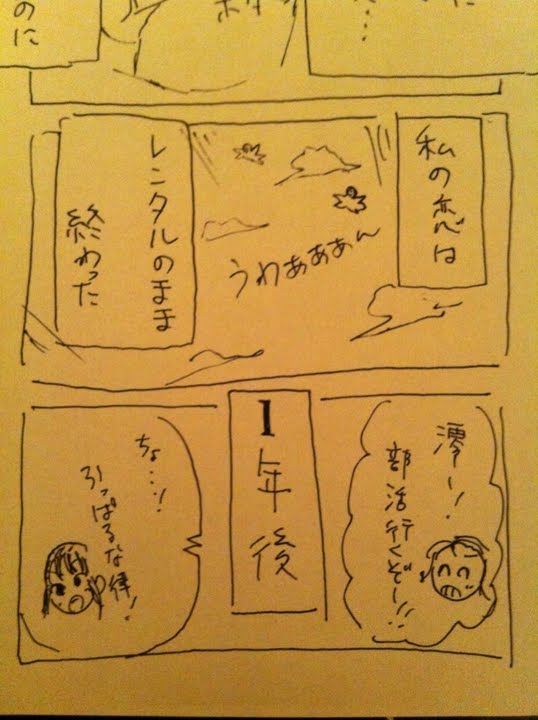 …
のに
私の恋は
うわぁぁぁん
レンタルのまま
終わった
澪ー!
部活行くぞー!!
1年後
ちょ…!
引っぱるな律!